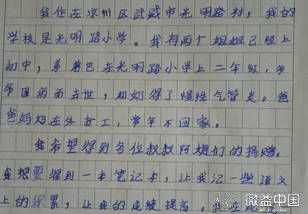 我住在凉州区武威市光明路村，我的
学校是光明路小学。我有两个姐姐已经上
初中，弟弟在光明路小学上二年级，爷
爷因病而去世，奶奶得了慢性气管炎。爸
爸妈妈在外打工，常年不回家。
我希望得到各位叔叔阿姨们的捐赠。
我想要得到一本笔记本，让我记一些语文
上的，让我的成绩提高，我还
微益中国